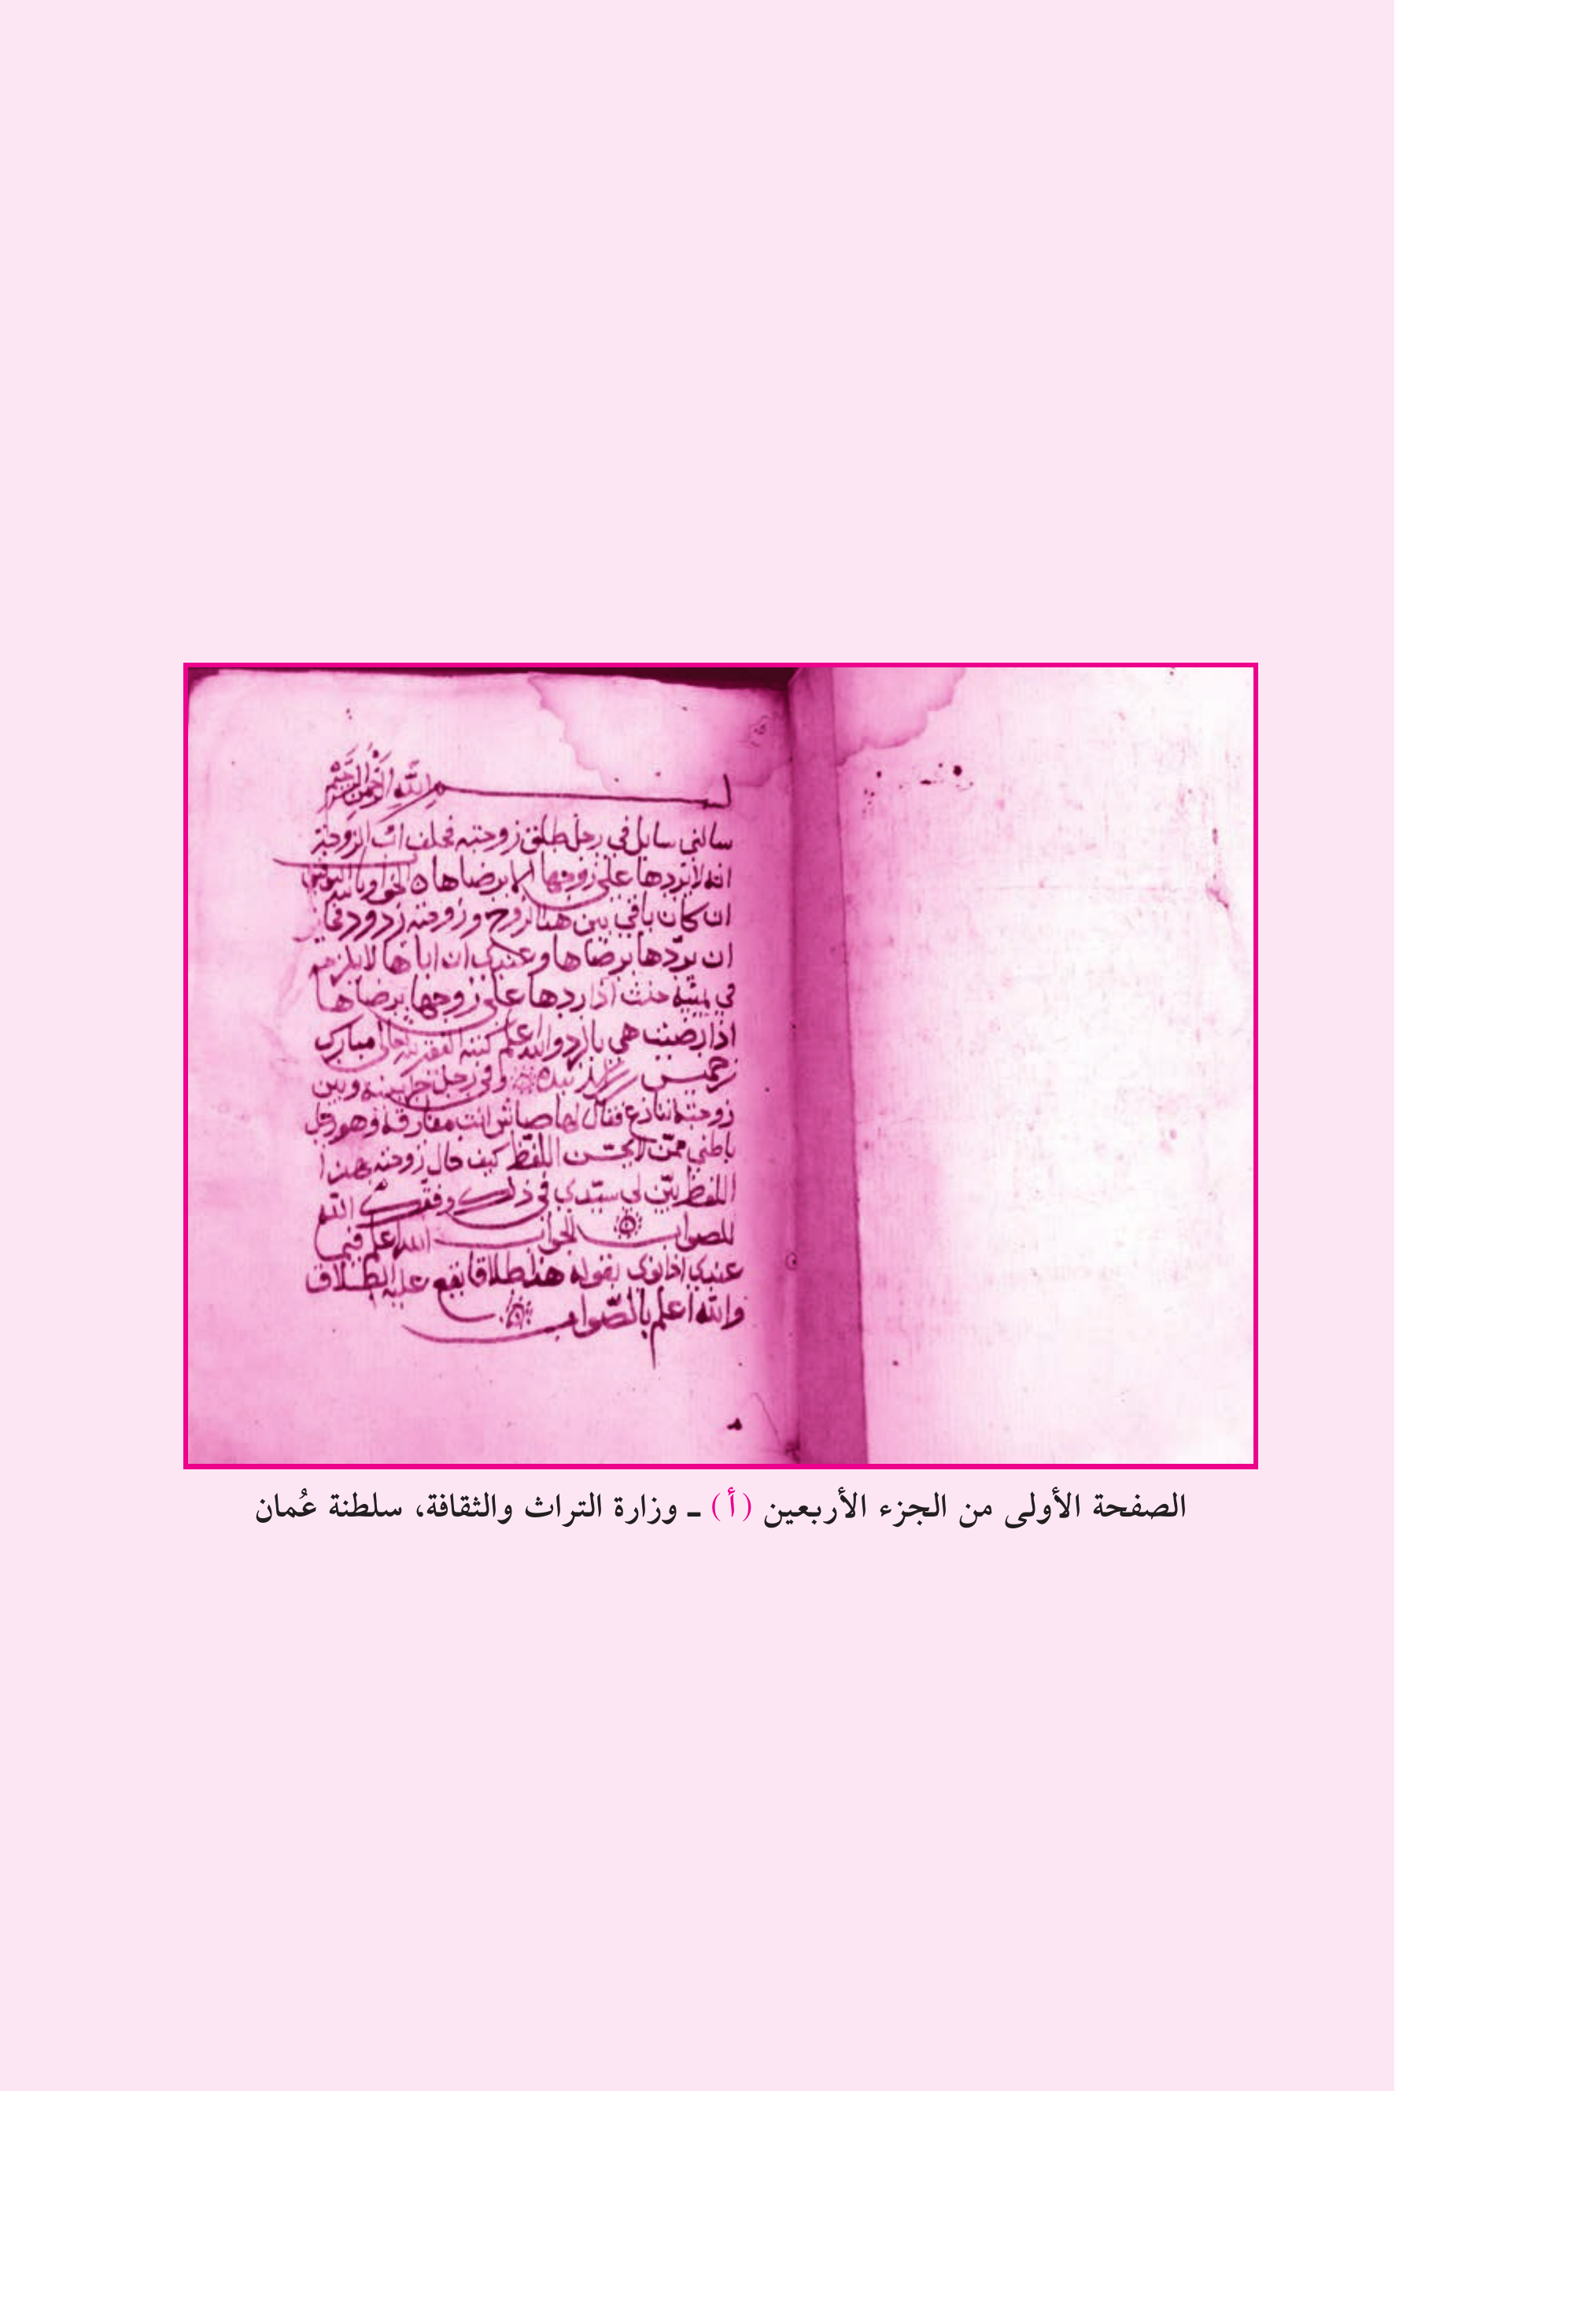 بسم الله الرحمن الرحيم
سالني سايل في رجل طلق زوجته فحلف اب الزوجة
انه لا يردها على زوجها الا برضاها الجواب وبالله التوفيق
ان كان باقي بين هذا الزوج وزوجته ردود فجايز
ان يردها برضاها وعندي ان اباها لا يلزمه
في يمينه حنث اذا ردها على زوجها برضاها
اذا رضيت هي بالرد والله اعلم كتبه الفقير لله تعالى مبارك
بيده وفي رجل جرا بينه وبين
زوجته تنازع فقال لها انت مفارقة وهو رجل
باطني ممن لا يحسن اللفظ كيف حال زوجته بهذا
اللفظ بين لي سيدي في ذلك وفقك الله
للصواب الجواب الله اعلم فيما
عندي اذا نوى بقوله هذا طلاقا يقع عليه الطلاق
والله اعلم بالصواب
الصفحة الأولى من الجزء الأربعين (أ) ـ وزارة التراث والثقافة، سلطنة عُمان